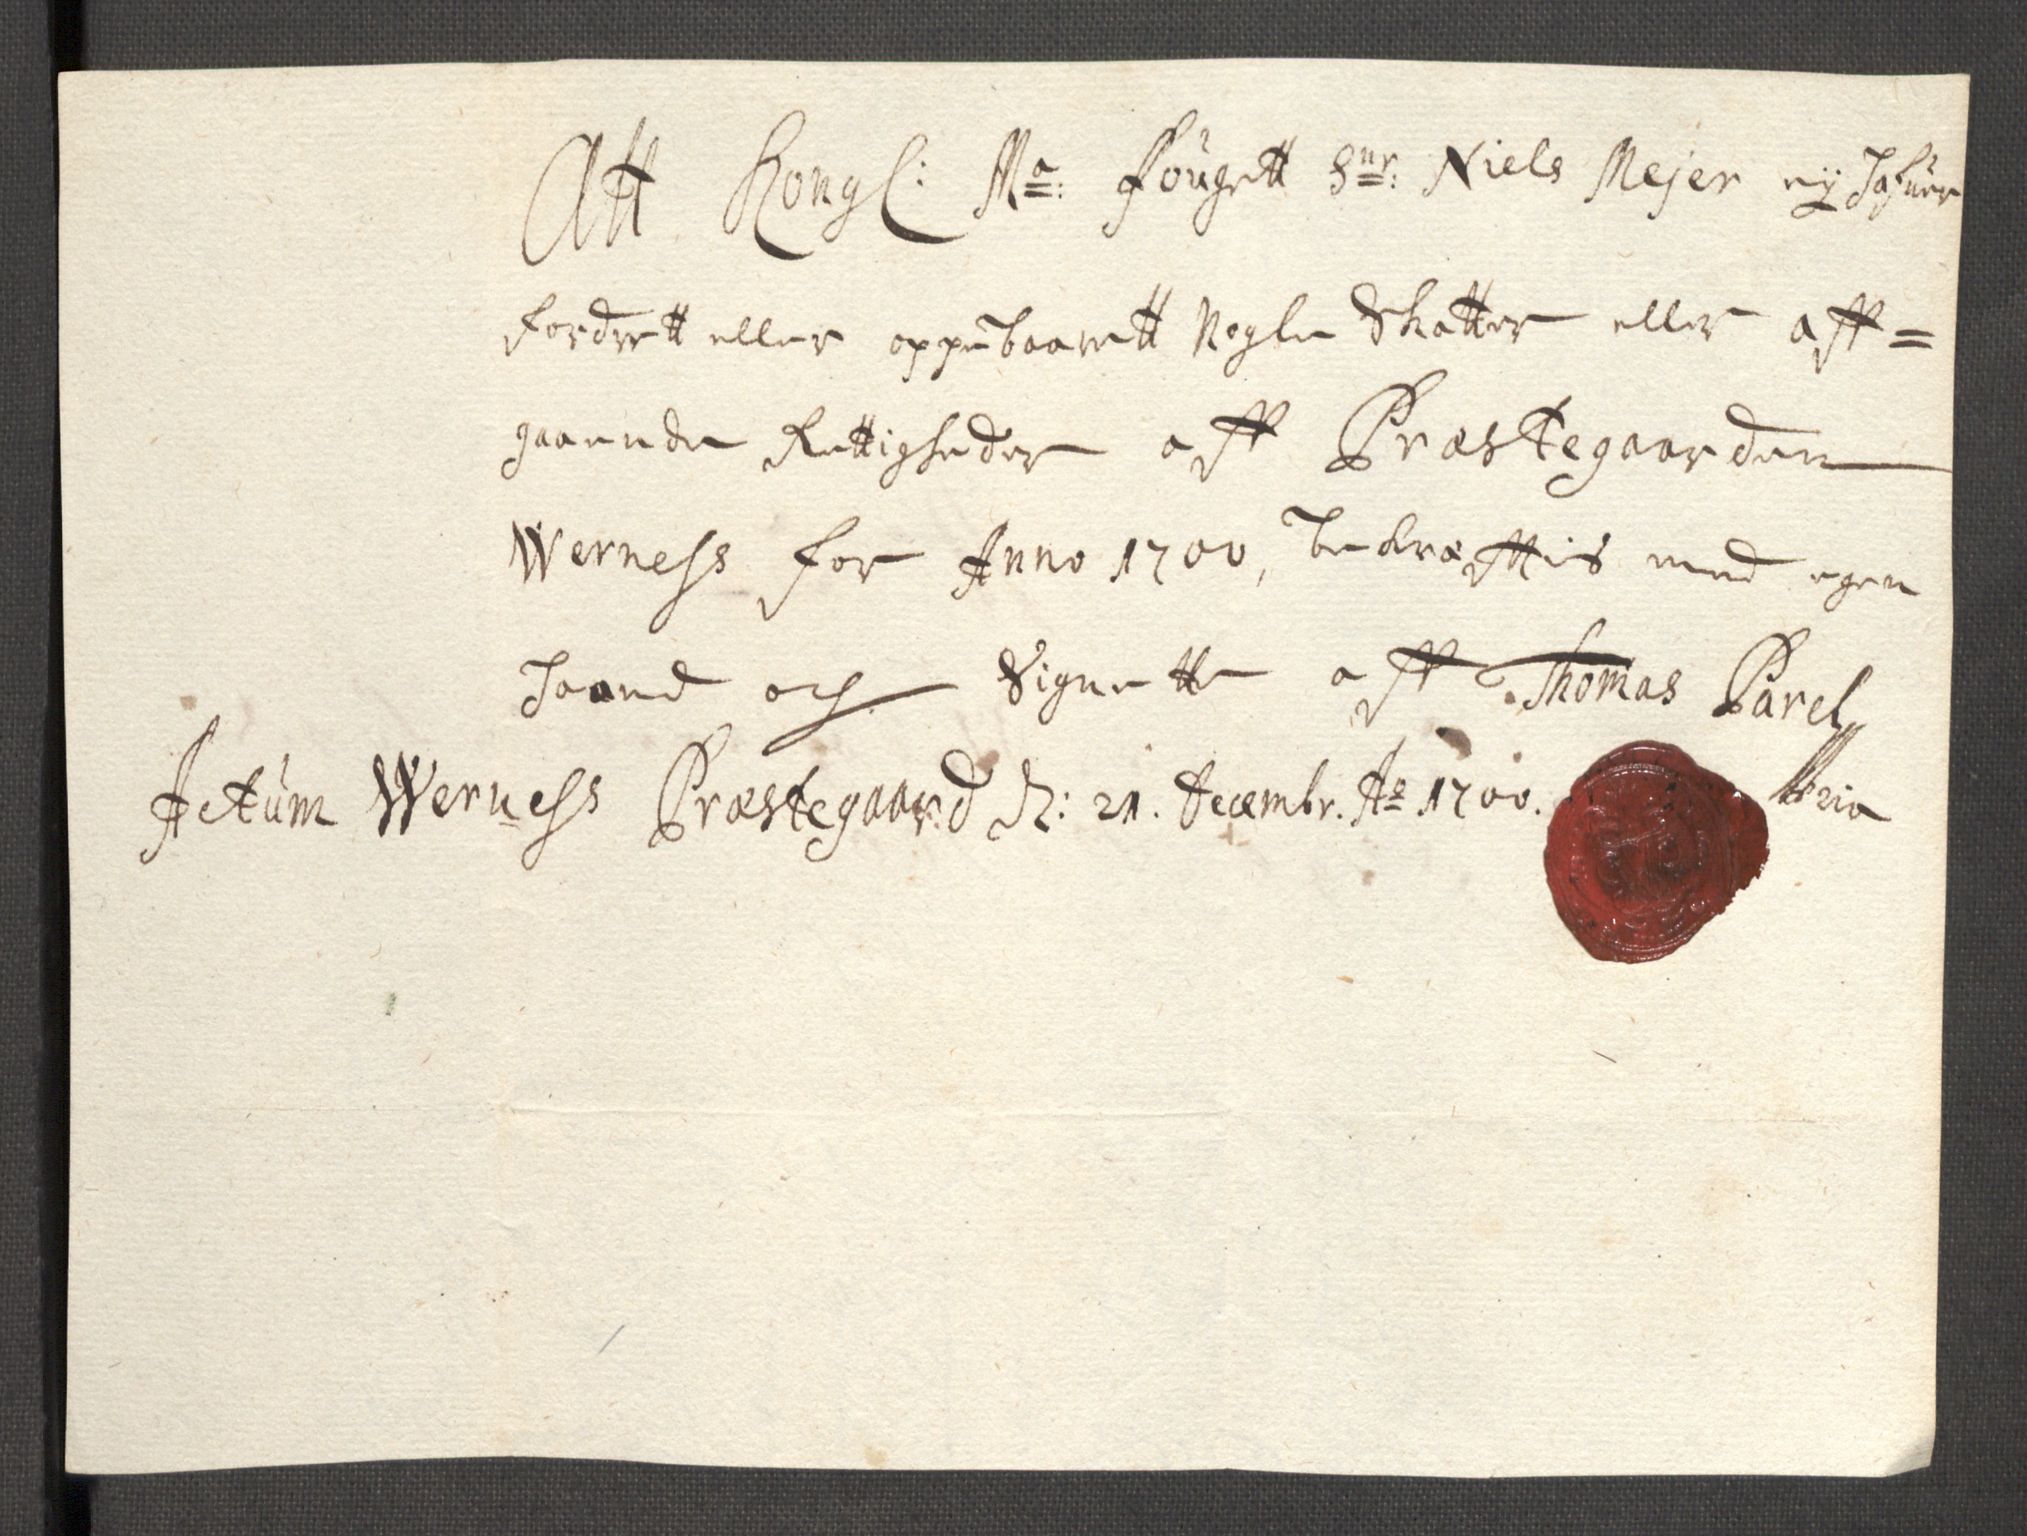 Att Kongl: Ma: fougett Snr: Niels Mejer eÿ hafuer
fordrett eller oppebaarett Nogle Skatter eller aff=
gaaende Rettigheder aff Præstegaarden
Werness for Anno 1700, bekræfftis med egen
haand och Signette aff Thomas Parel
Actum Werness Præstegaard d: 21. decembr. Ao 1700.